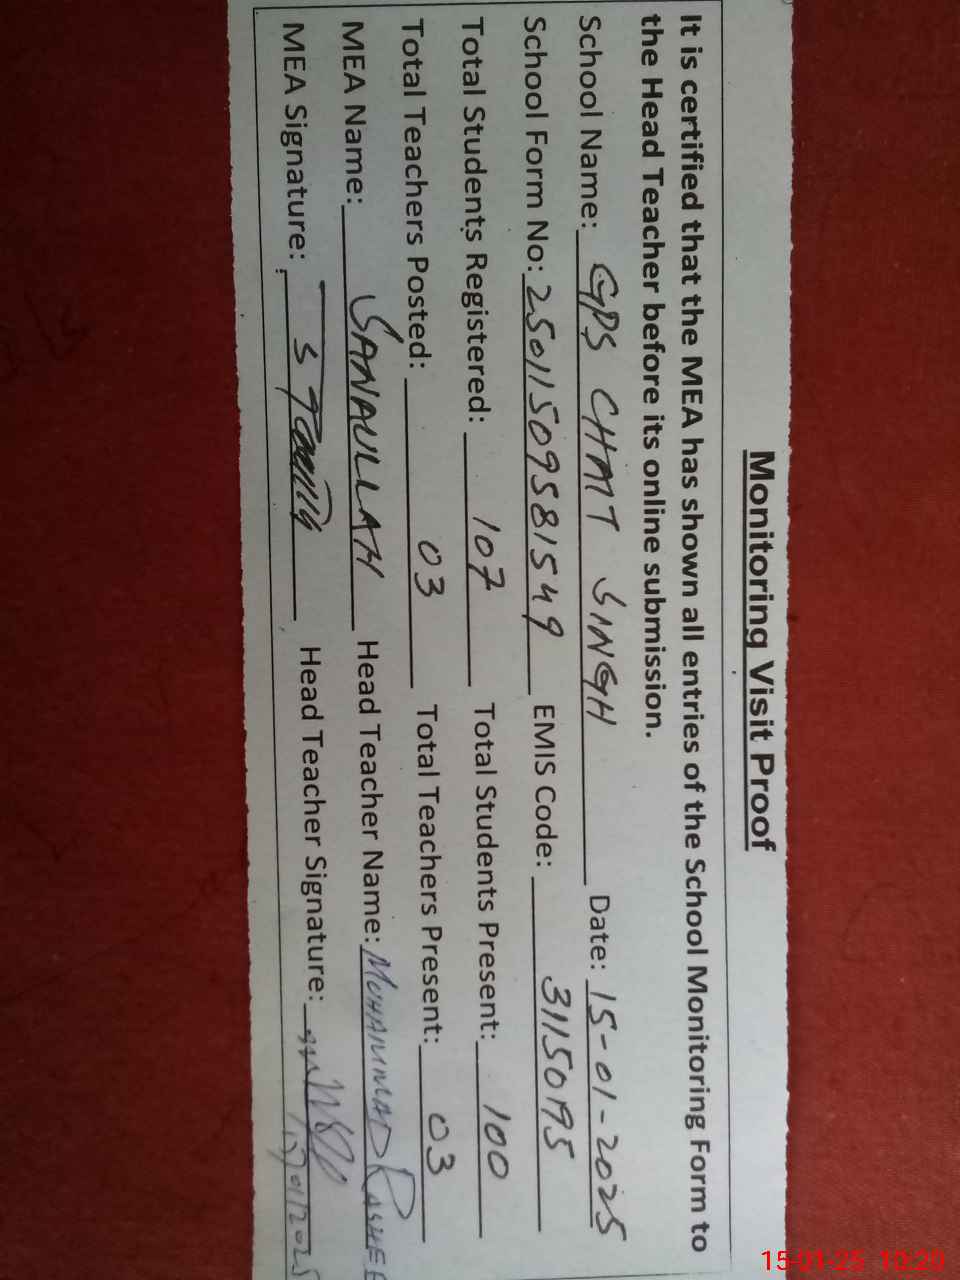 Monitoring Visit Proof
It is certified that the MEA has shown all entries of the School Monitoring Form to
the Head Teacher before its online submission.
School Name: GPS CHAIT SINGH Date: 15-01-2025
School Form No: 25011509581549 EMIS Code: 31150195
Total Students Registered: 107 Total Students Present: 100
Total Teachers Posted: 03 Total Teachers Present: 03
MEA Name: SANAULLAH Head Teacher Name: MUHAMMAD RASHEE
MEA Signature: Head Teacher Signature:
15-01-25 10:20